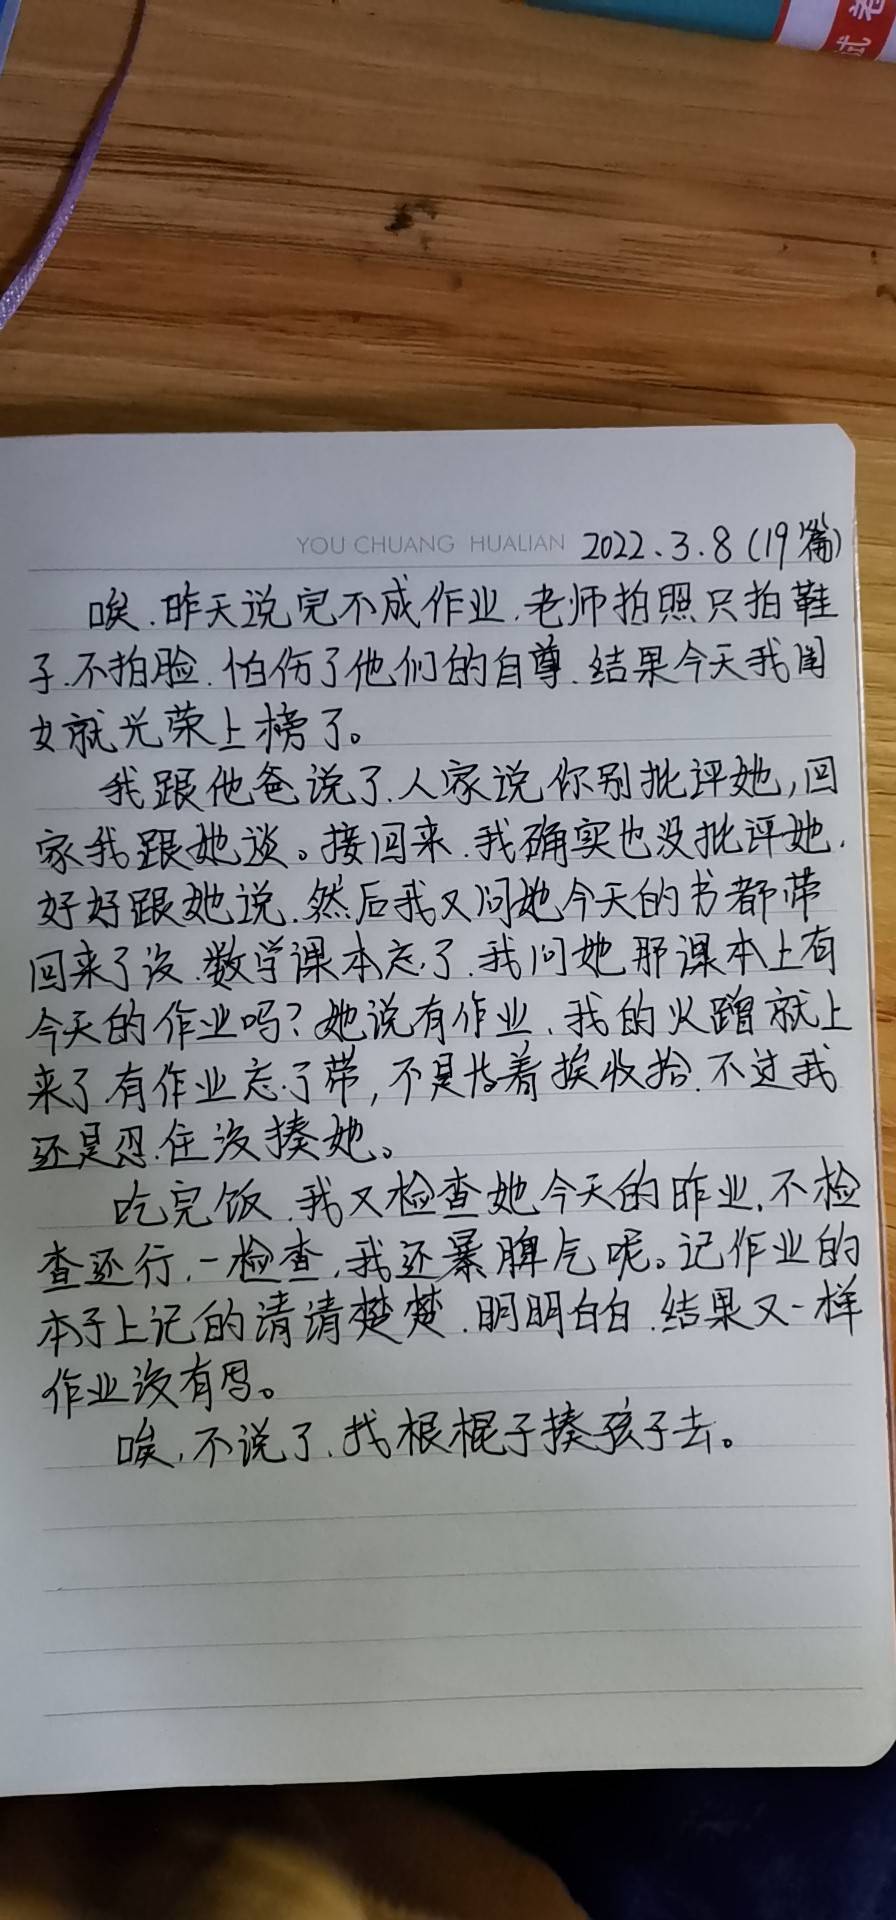 试卷
YOU CHUANG HUALIAN 2022.3.8(19篇)
唉.昨天说完不成作业.老师拍照只拍鞋
子.不拍脸.怕伤了他们的自尊.结果今天我闺
女就光荣上榜了。
我跟他爸说了.人家说你别批评她,回
家我跟她谈。接回来.我确实也没批评她.
好好跟她说.然后我又问她今天的书都带
回来了没.数学课本忘了.我问她那课本上有
今天的作业吗?她说有作业.我的火蹭就上
来了.有作业忘了带,不是找着挨收拾.不过我
还是忍住没揍她。
吃完饭.我又检查她今天的昨业.不检
查还行.一检查.我还暴脾气呢。记作业的
本子上记的清清楚楚.明明白白.结果又一样
作业没有写。
唉.不说了.找根棍子揍孩子去。